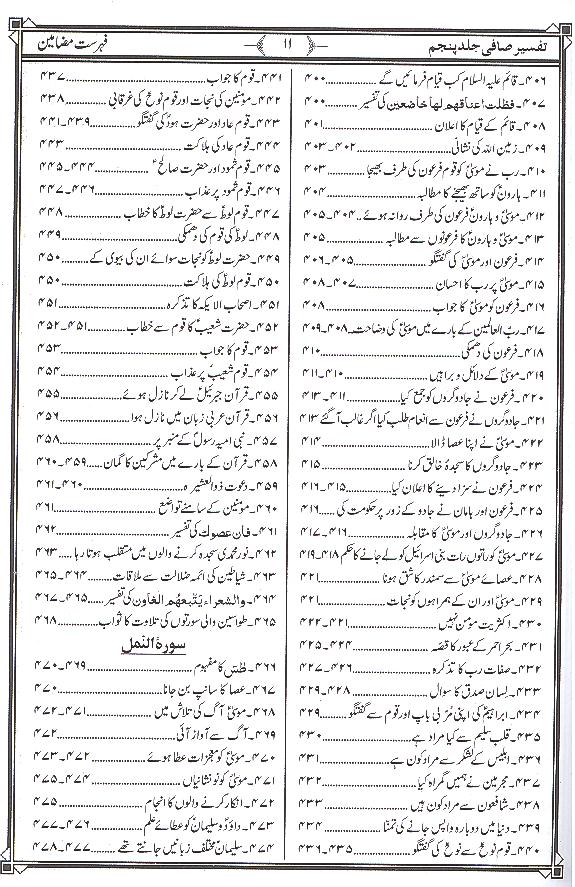 تفسیر صافی جلد پنجم
۱۱
فہرست مضامین
۴۰۶۔ قائم علیہ السلام کب قیام فرمائیں گے ۴۰۰
۴۰۷۔ فظلت اعناقھم لھا خاضعین کی تفسیر ۴۰۰
۴۰۸۔ قائم کے قیام کا اعلان ۴۰۱
۴۰۹۔ زمین اللہ کی نشانی ۴۰۲۔۴۰۳
۴۱۰۔ رب نے موسیٰؑ کو قوم فرعون کی طرف بھیجا ۴۰۳
۴۱۱۔ ہارونؑ کو ساتھ بھیجنے کا مطالبہ ۴۰۴
۴۱۲۔ موسیٰؑ و ہارونؑ فرعون کی طرف روانہ ہوئے ۴۰۴۔۴۰۵
۴۱۳۔ موسیٰؑ و ہارونؑ کا فرعونوں سے مطالبہ ۴۰۵
۴۱۴۔ فرعون اور موسیٰؑ کی گفتگو ۴۰۵۔۴۰۶
۴۱۵۔ موسیٰؑ پر رب کا احسان ۴۰۷۔۴۰۸
۴۱۶۔ فرعون کو موسیٰؑ کا جواب ۴۰۸
۴۱۷۔ ربّ العالمین کے بارے میں موسیٰؑ کی وضاحت ۴۰۸۔۴۰۹
۴۱۸۔ فرعون کی دھمکی ۴۱۰
۴۱۹۔ موسیٰؑ کے دلائل و براہین ۴۱۰۔۴۱۱
۴۲۰۔ فرعون نے جادوگروں کو جمع کیا ۴۱۱۔۴۱۳
۴۲۱۔ جادوگروں نے فرعون سے انعام طلب کیا اگر غالب آگئے ۴۱۳
۴۲۲۔ موسیٰؑ نے اپنا عصا ڈالا ۴۱۴
۴۲۳۔ جادوگروں کا سجدۂ خالق کرنا ۴۱۵
۴۲۴۔ فرعون نے سزا دینے کا اعلان کیا ۴۱۵۔۴۱۶
۴۲۵۔ فرعون اور ہامان نے جادو کے زور پر حکومت کی ۴۱۶
۴۲۶۔ جادوگروں اور موسیٰؑ کا مقابلہ ۴۱۶۔۴۱۷
۴۲۷۔ موسیٰؑ کو راتوں رات بنی اسرائیل کو لے جانے کا حکم ۴۱۸۔۴۱۹
۴۲۸۔ عصائے موسیٰؑ سے سمندر کا شق ہونا ۴۲۱
۴۲۹۔ موسیٰؑ اور ان کے ہمراہوں کو نجات ۴۲۱
۴۳۰۔ اکثریت مومن نہیں ۴۲۱۔۴۲۲
۴۳۱۔ بحر احمر کے عبور کا قصّہ ۴۲۴۔۴۲۵
۴۳۲۔ صفات رب کا تذکرہ ۴۲۶۔۴۲۷
۴۳۳۔ لسان صدق کا سوال ۴۲۸۔۴۲۹
۴۳۴۔ ابراہیمؑ کی اپنی مُرَبّی باپ اور قوم سے گفتگو ۴۲۹
۴۳۵۔ قلب سلیم سے کیا مراد ہے ۴۳۰
۴۳۶۔ ابلیس کے لشکر سے مراد کون ہے ۴۳۱
۴۳۷۔ مجرمین نے ہمیں گمراہ کیا ۴۳۲
۴۳۸۔ شافعون سے مراد کون ہیں ۴۳۳
۴۳۹۔ دنیا میں دوبارہ واپس جانے کی تمنّا ۴۳۴
۴۴۰۔ قوم نوحؑ سے نوحؑ کی گفتگو ۴۳۵۔۴۳۶
۴۴۱۔ قوم کا جواب ۴۳۷
۴۴۲۔ مؤمنین کی نجات اور قوم نوحؑ کی غرقابی ۴۳۸
۴۴۳۔ قوم عاد اور حضرت ہودؑ کی گفتگو ۴۳۹۔۴۴۱
۴۴۴۔ قوم عاد کی ہلاکت ۴۴۳
۴۴۵۔ قوم ثمود اور حضرت صالحؑ ۴۴۴۔۴۴۵
۴۴۶۔ قوم ثمود پر عذاب ۴۴۶۔۴۴۷
۴۴۷۔ قوم لوطؑ سے حضرت لوطؑ کا خطاب ۴۴۸
۴۴۸۔ لوطؑ کی قوم کی دھمکی ۴۴۹
۴۴۹۔ حضرت لوطؑ کو نجات سوائے ان کی بیوی کے ۴۵۰
۴۵۰۔ قوم لوطؑ کی ہلاکت ۴۵۰
۴۵۱۔ اصحاب الایکہ کا تذکرہ ۴۵۱
۴۵۲۔ حضرت شعیبؑ کا قوم سے خطاب ۴۵۱۔۴۵۲
۴۵۳۔ قوم کا جواب ۴۵۳
۴۵۴۔ قوم شعیبؑ پر عذاب ۴۵۴
۴۵۵۔ قرآن جبرئیلؑ لے کر نازل ہوئے ۴۵۵
۴۵۶۔ قرآن عربی زبان میں نازل ہوا ۴۵۶
۴۵۷۔ بنی امیہ رسولؐ کے منبر پر ۴۵۸
۴۵۸۔ قرآن کے بارے میں مشرکین کا گمان ۴۵۹۔۴۶۰
۴۵۹۔ دعوت ذوالعشیرہ ۴۶۰۔۴۶۱
۴۶۰۔ مؤمنین کے سامنے تواضع ۴۶۱
۴۶۱۔ فان عصوک کی تفسیر ۴۶۲
۴۶۲۔ نور محمدی سجدہ کرنے والوں میں منتقلب ہوتا رہا ۴۶۳
۴۶۳۔ شیاطین کی ائمہ ضلالت سے ملاقات ۴۶۴۔۴۶۵
۴۶۴۔ والشعراء یتبعھم الغاون کی تفسیر ۴۶۵۔۴۶۷
۴۶۵۔ طواسین والی سورتوں کی تلاوت کا ثواب ۴۶۸
سورۃ النمل
۴۶۶۔ طٰسٓ کا مفہوم ۴۶۹۔۴۷۰
۴۶۷۔ عصا کا سانپ بن جانا ۴۷۰
۴۶۸۔ موسیٰؑ آگ کی تلاش میں ۴۷۱۔۴۷۲
۴۶۹۔ آگ سے آواز آئی ۴۷۲
۴۷۰۔ موسیٰؑ کو معجزات عطا ہوئے ۴۷۲۔۴۷۳
۴۷۱۔ موسیٰؑ کو نو نشانیاں ۴۷۴۔۴۷۵
۴۷۲۔ انکار کرنے والوں کا انجام ۴۷۵
۴۷۳۔ داؤدؑ و سلیمانؑ کو عطائے علم ۴۷۶۔۴۷۷
۴۷۴۔ سلیمانؑ مختلف زبانیں جانتے تھے ۴۷۷۔۴۷۸